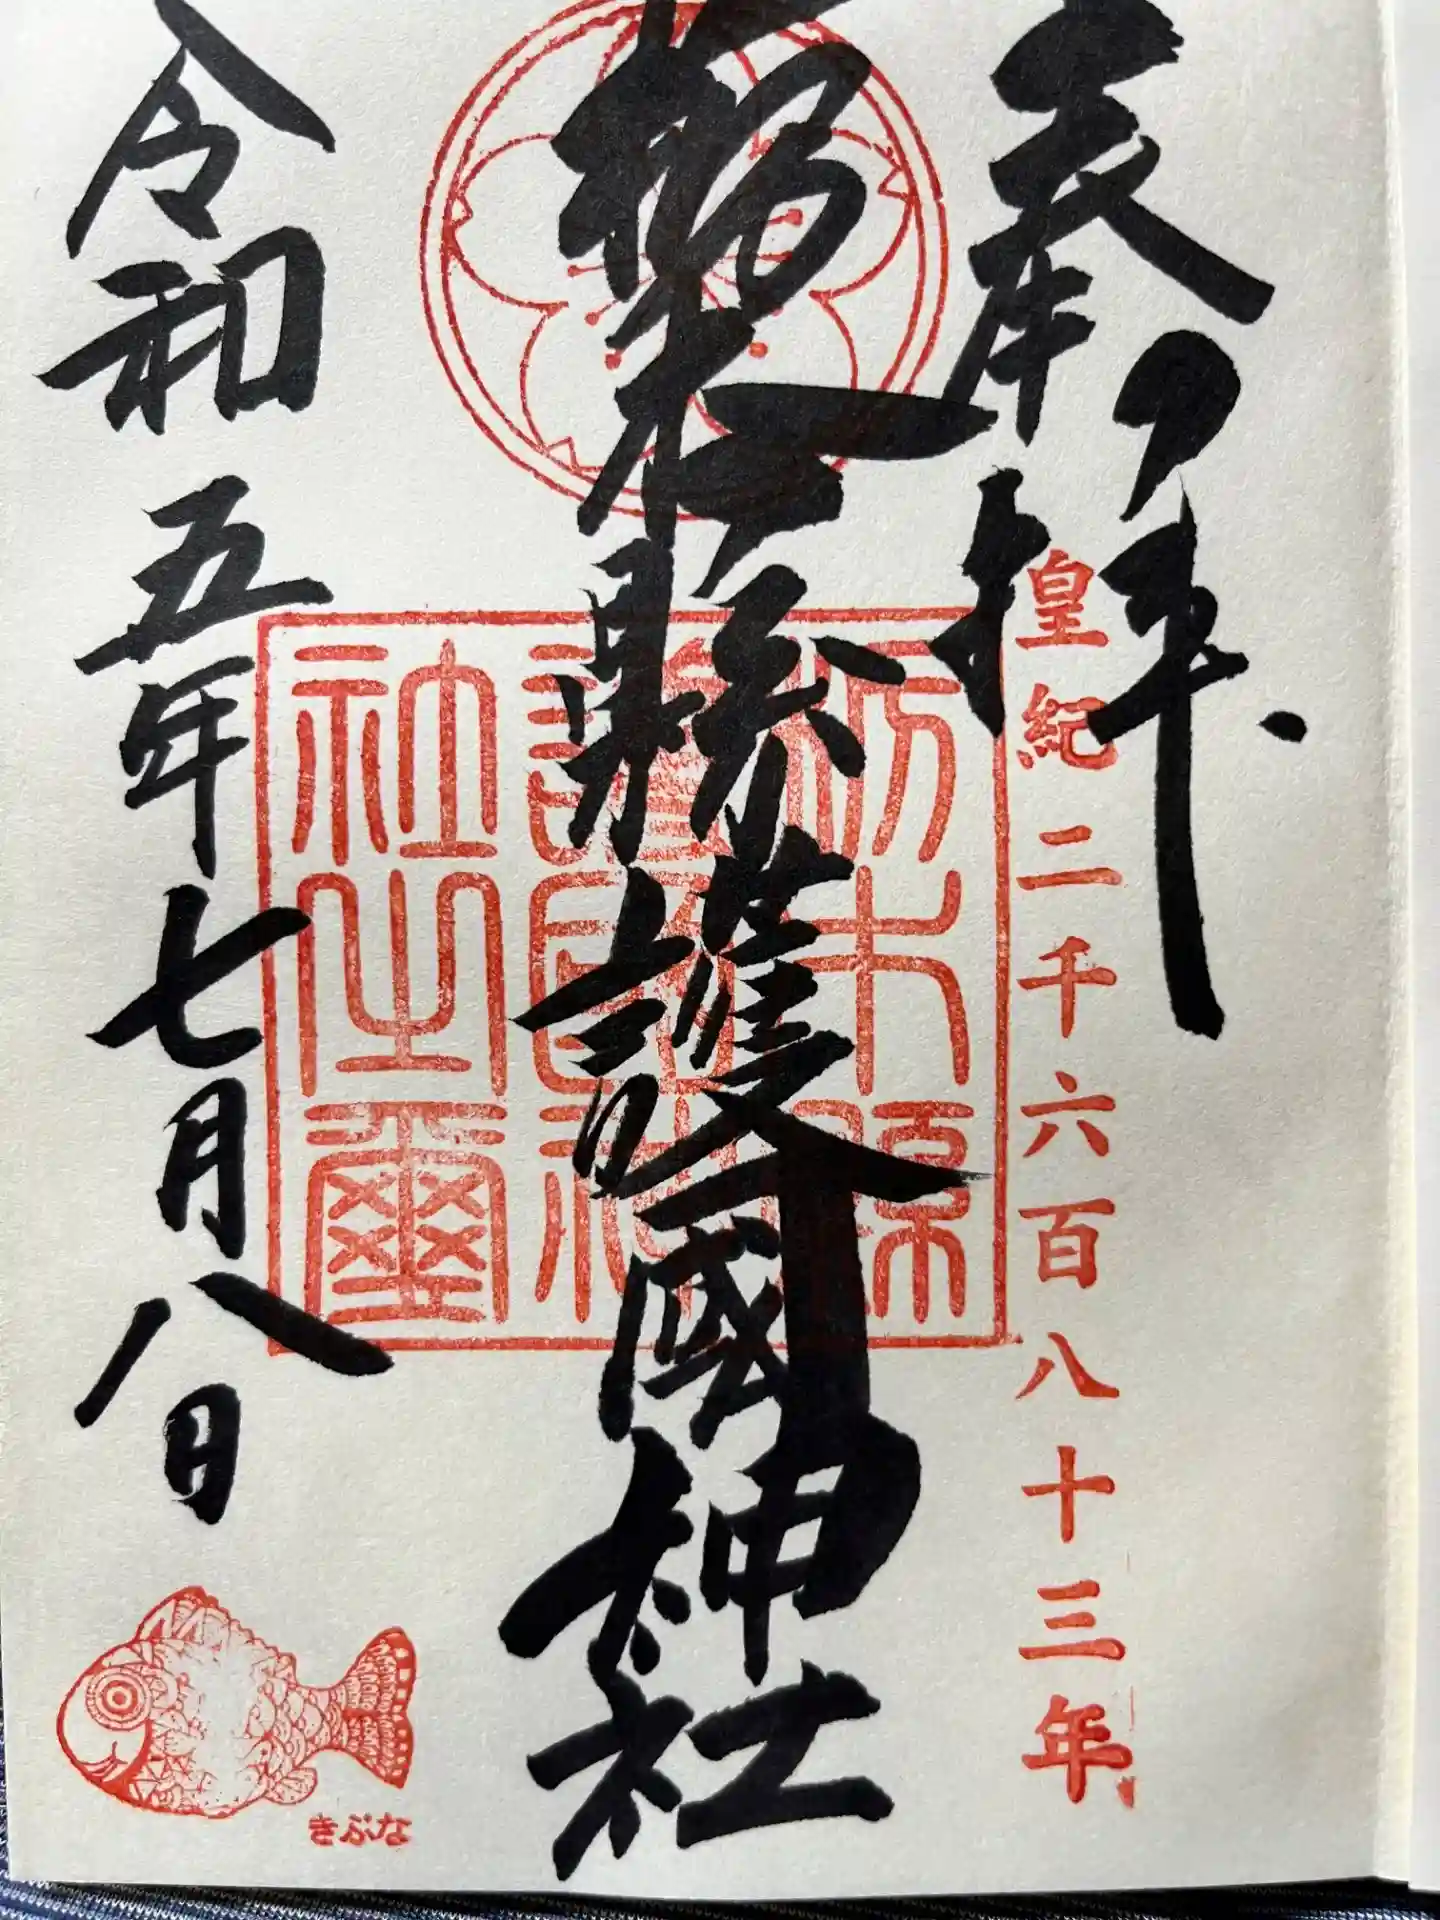 奉拝
皇紀二千六百八十三年
栃木縣護國神社
栃木縣
護國神
社之璽
令和五年七月八日
きぶな